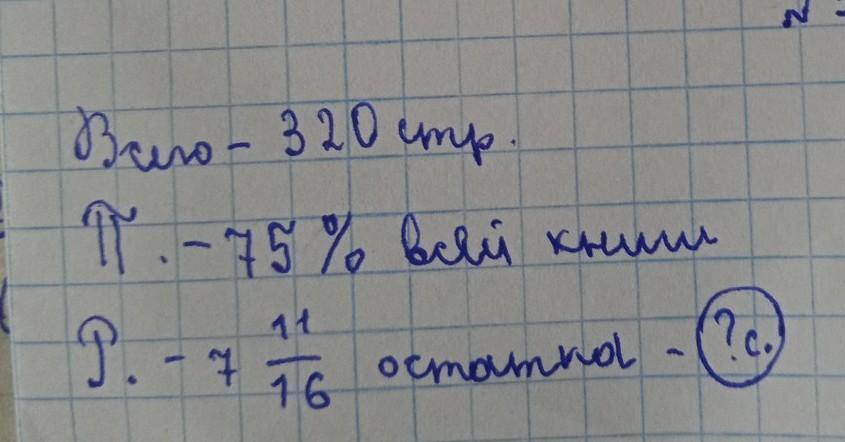 N
Всего - 320 стр.
П. - 75% всей книги
Р. - 7 11/16 остатка - ?с.